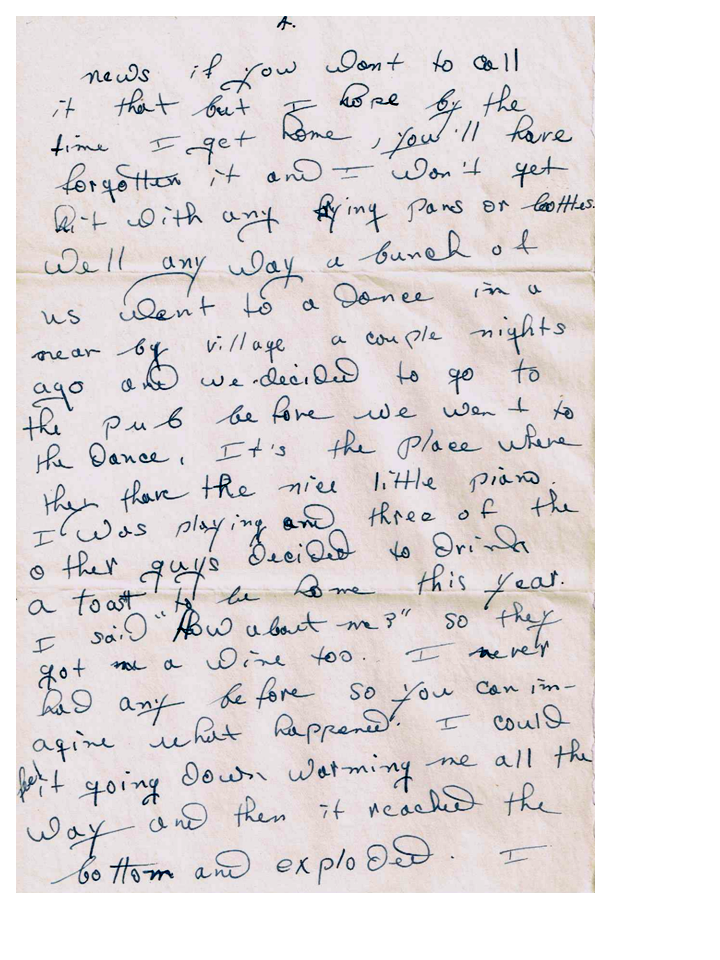 4.
news if you want to call
it that but I hope by the
time I get home, you'll have
forgotten it and I won't get
hit with any frying pans or bottles.
We'll any way a bunch of
us went to a Dance in a
near by village a couple nights
ago and we decided to go to
the pub before we went to
the Dance. It's the place where
they have the nice little piano.
I was playing and three of the
other guys decided to Drink
a toast to be home this year.
I said "How about me?" so they
got me a wine too. I never
had any before so you can im-
agine what happened. I could
feel it going down warming me all the
way and then it reached the
bottom and exploded. I